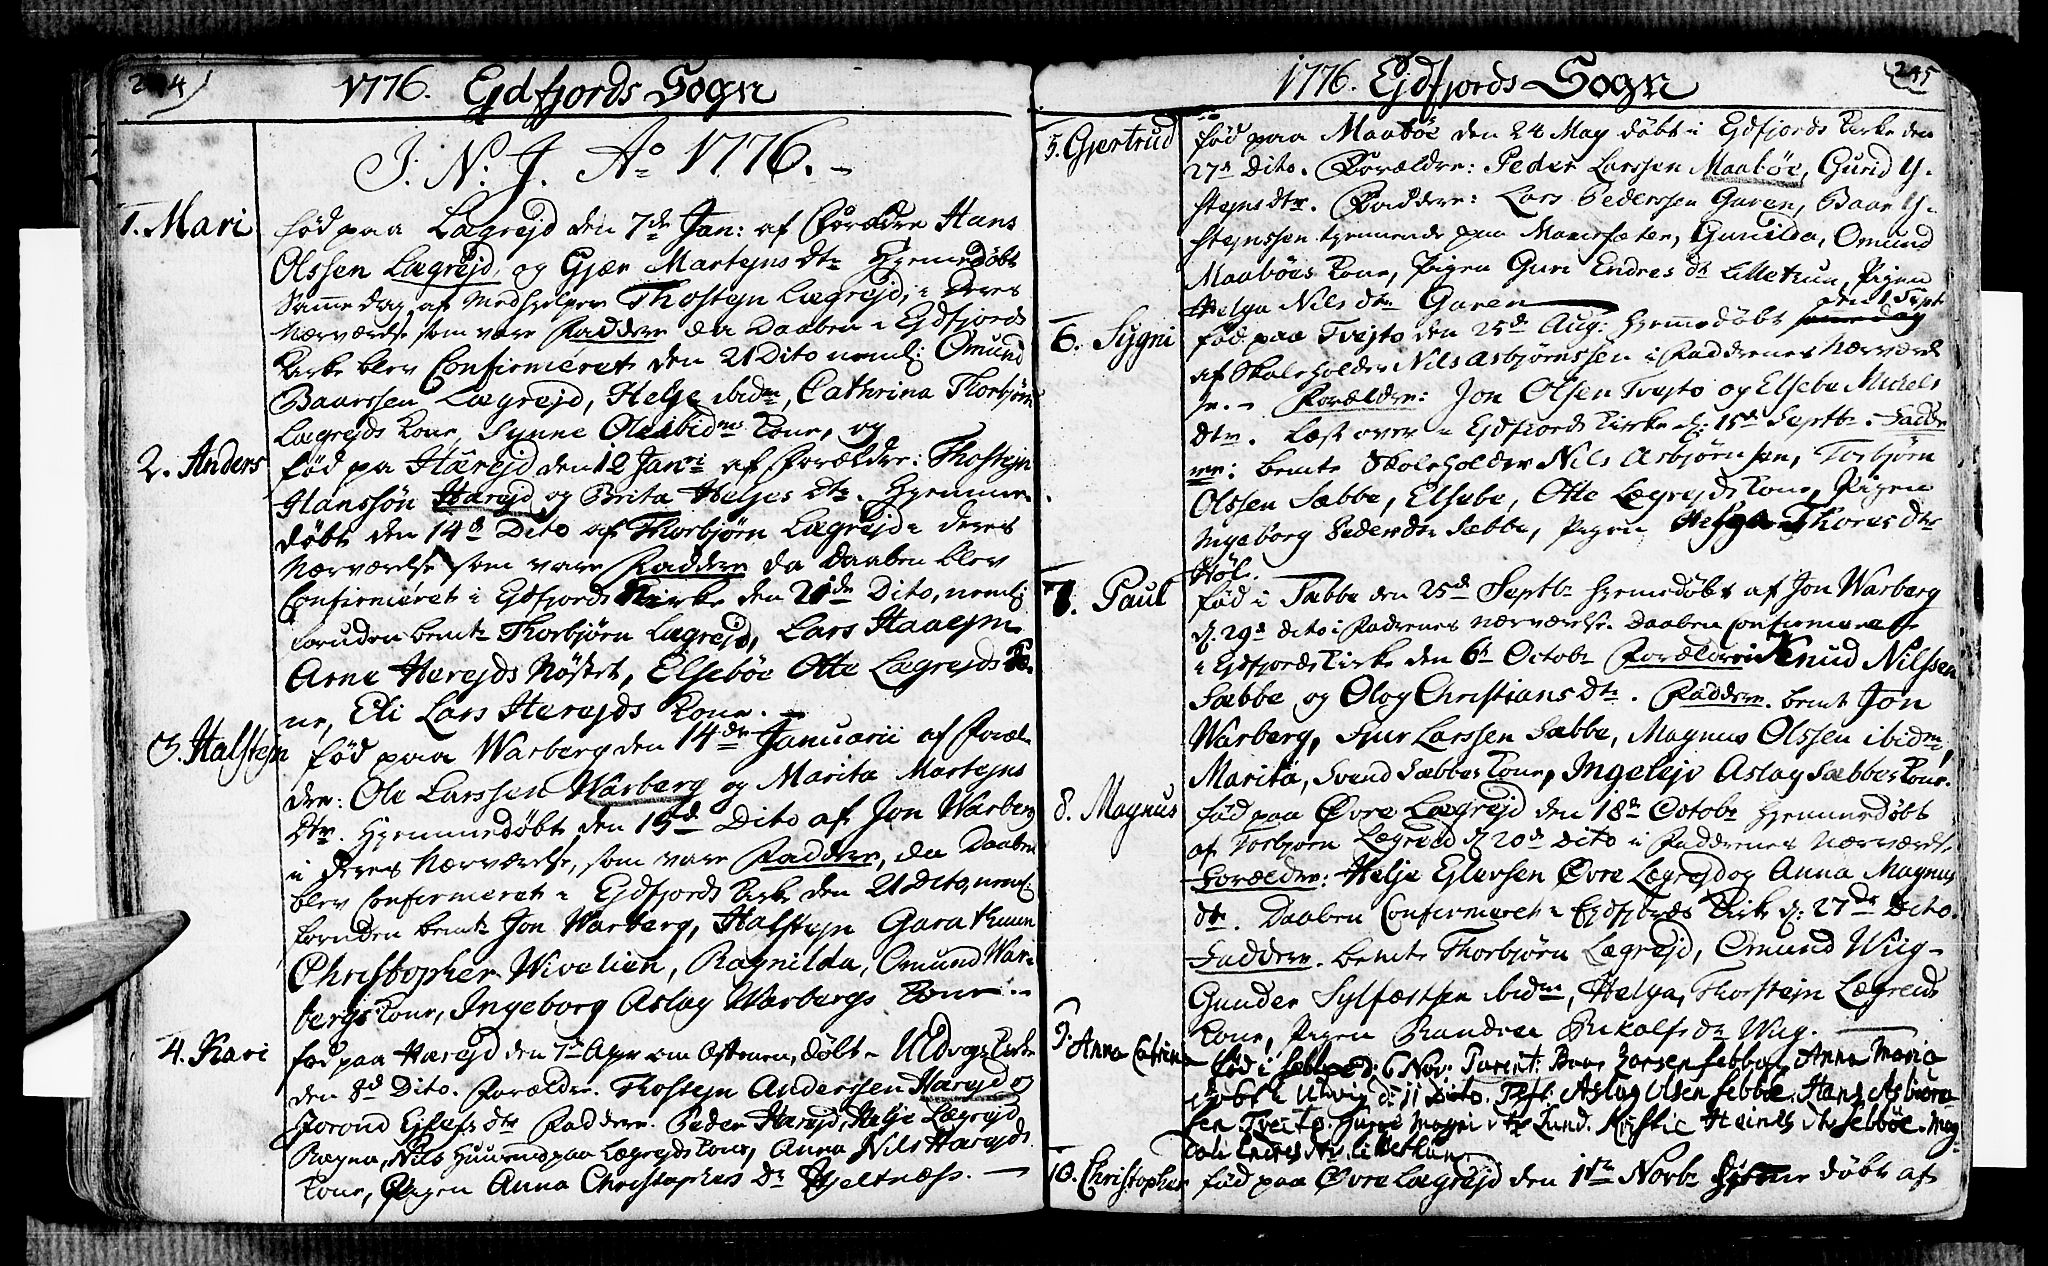 1776. Ejdfjords Sogn
J. N. J. Ao 1776.
1. Mari
fød paa Lægrejd den 7de Jan: af Forældre Hans
Olssen Lægrejd, og Gjær Martejns dtr Hjemedøbt
Samme dag af Medhjelper Thostejn Lægrejd, i Deres
Nærværelse som vare Faddere da Daaben i Ejdfjords
Kirke blev Confirmeret den 21 Dito neml: Omund
Baarssen Lægrejd, Helje ibidm, Cathrina Thorbjørn
Lægrejds Kone, Synne Ole ibidms Kone, og
2. Anders
fød pa Hærejd den 12 Janri af Forældre: Thostejn
Hanssøn Hærejd og Brita Heljes dtr. Hjemme
døbt den 14d Dito af Thorbjørn Lægrejd i deres
Nærværelse som vare Faddere da Daaben blev
Confirmeret i Ejdfjords Kirke den 21de Dito, neml:
foruden bemte Thorbjørn Lægrejd, Lars Haaejm
Arne Herejds Nøstet, Elsebøe Otte Lægrejds Ko-
ne, Eli Lars Herejds Kone.
3. Halstejn
fød paa Warberg den 14de Januarii af Foræl-
dre: Ole Larssen Warberg og Marita Martejns
Dtr. Hjemmedøbt den 15d Dito af Jon Warberg
i Deres Nærværelse, som vare Faddere, da Daaben
blev Confirmeret i Ejdfjords Kirke den 21 Dito, neml:
foruden bemte Jon Warberg, Halstejn Garathuun
Christopher Wivelien, Ragnilda, Omund War-
bergs Kone, Ingeborg Aslag Warbergs Kone.
4. Kari
fød paa Hærejd den 7de Apr om Aftenen, døbt i Uldvigs Kirke
den 8d Dito. Forældre. Thostejn Anderssen Hærejd og
Jorond Ejlefs dtr Faddere. Peder Hærejd, Helje Lægrejd,
Ragna, Nils Huusmd paa Lægrejds Kone, Anna Nils Hærejds
Kone, Pigen Anna Christophers Dr Hjeltnæss.
1776. Ejdfjords Sogn
245
5. Gjertrud
fød paa Maabøe den 24 May døbt i Ejdfjords Kirke den
27d Dito. Forældre: Peder Larssen Maabøe, Gurid Y-
stejns dtr. Faddere: Lars Pederssen Garen, Baar Y-
stejnssen tjenende paa Maursæten, Gunilda, Omund
Maabøes Kone, Pigen Guri Endres dr Lilletun, Pigen
Helga Nils dtr Garen
6. Sygni
den 1 Sept
fød paa Tvejto den 25d Aug: Hjemedøbt samedag
af Skoleholder Nils Asbjørnssen i Faddrenes Nærværel-
se. Forældre: Jon Olsen Tvejto og Elsebe Michels
dtr. Læst over i Ejdfjords Kirke d: 15d Septbr. Fadde
rne: bemte Skoleholder Nils Asbjørnsen, Torbjørn
Olssen Sæbbe, Elsebe, Otte Lægrejds Kone, Pigen
Ingeborg Pedersdtr Sæbbe, Pigen Helga Thores dtr
Høl.
7. Paul
fød i Sæbbe den 25d Septbr hjemedøbt af Jon Warberg
d: 29d dito i Fadrenes nærværelse. Daaben Confirmeret
i Ejdfjords Kirke den 6t Octobr Forældre: Knud Nilssen
Sæbbe og Olog Christians dtr. Faddere. bemte Jon
Warberg, Siur Larssen Sæbbe, Magnus Olssen ibidm,
Marita, Svend Sæbbes Kone, Ingelejv Aslag Sæbbes Kone.
8. Magnus
fød paa Øvre Lægrejd den 18d Octobr Hjemmedøbt
af Torbjørn Lægreid d 20d Dito i Faddrenes Nærværelse
Forældre: Helje Ejlevsen Øvre Lægrejd og Anna Magnus
dtr. Daaben Confirmeret i Ejdfjords Kirke d: 27de Dito.
Faddere. bemte Thorbjørn Lægrejd, Omund Wiig-
Gunder Sylfæstsen ibidm, Helga, Thorstejn Lægreids
Kone, Pigen Randvei Brikolfs dtr Wiig.
9. Anna Catrina
fød i Sebbøe d: 6 Nov. Parent: Baar Larsen Sebbøe, Anna Maria
døbt i Ulvig d: 11 Dito. Test: Aslag Olsen Sebbøe. Hans Asbiørn
sen Tveito. Guroe Magne dtr Lund. Kirstie Heines dtr Sebbøe. Mag-
Endres dtr Lilletun.
10. Christopher
fød paa Øvre Lægrejd den 1ste Novbr hjemme døbt af